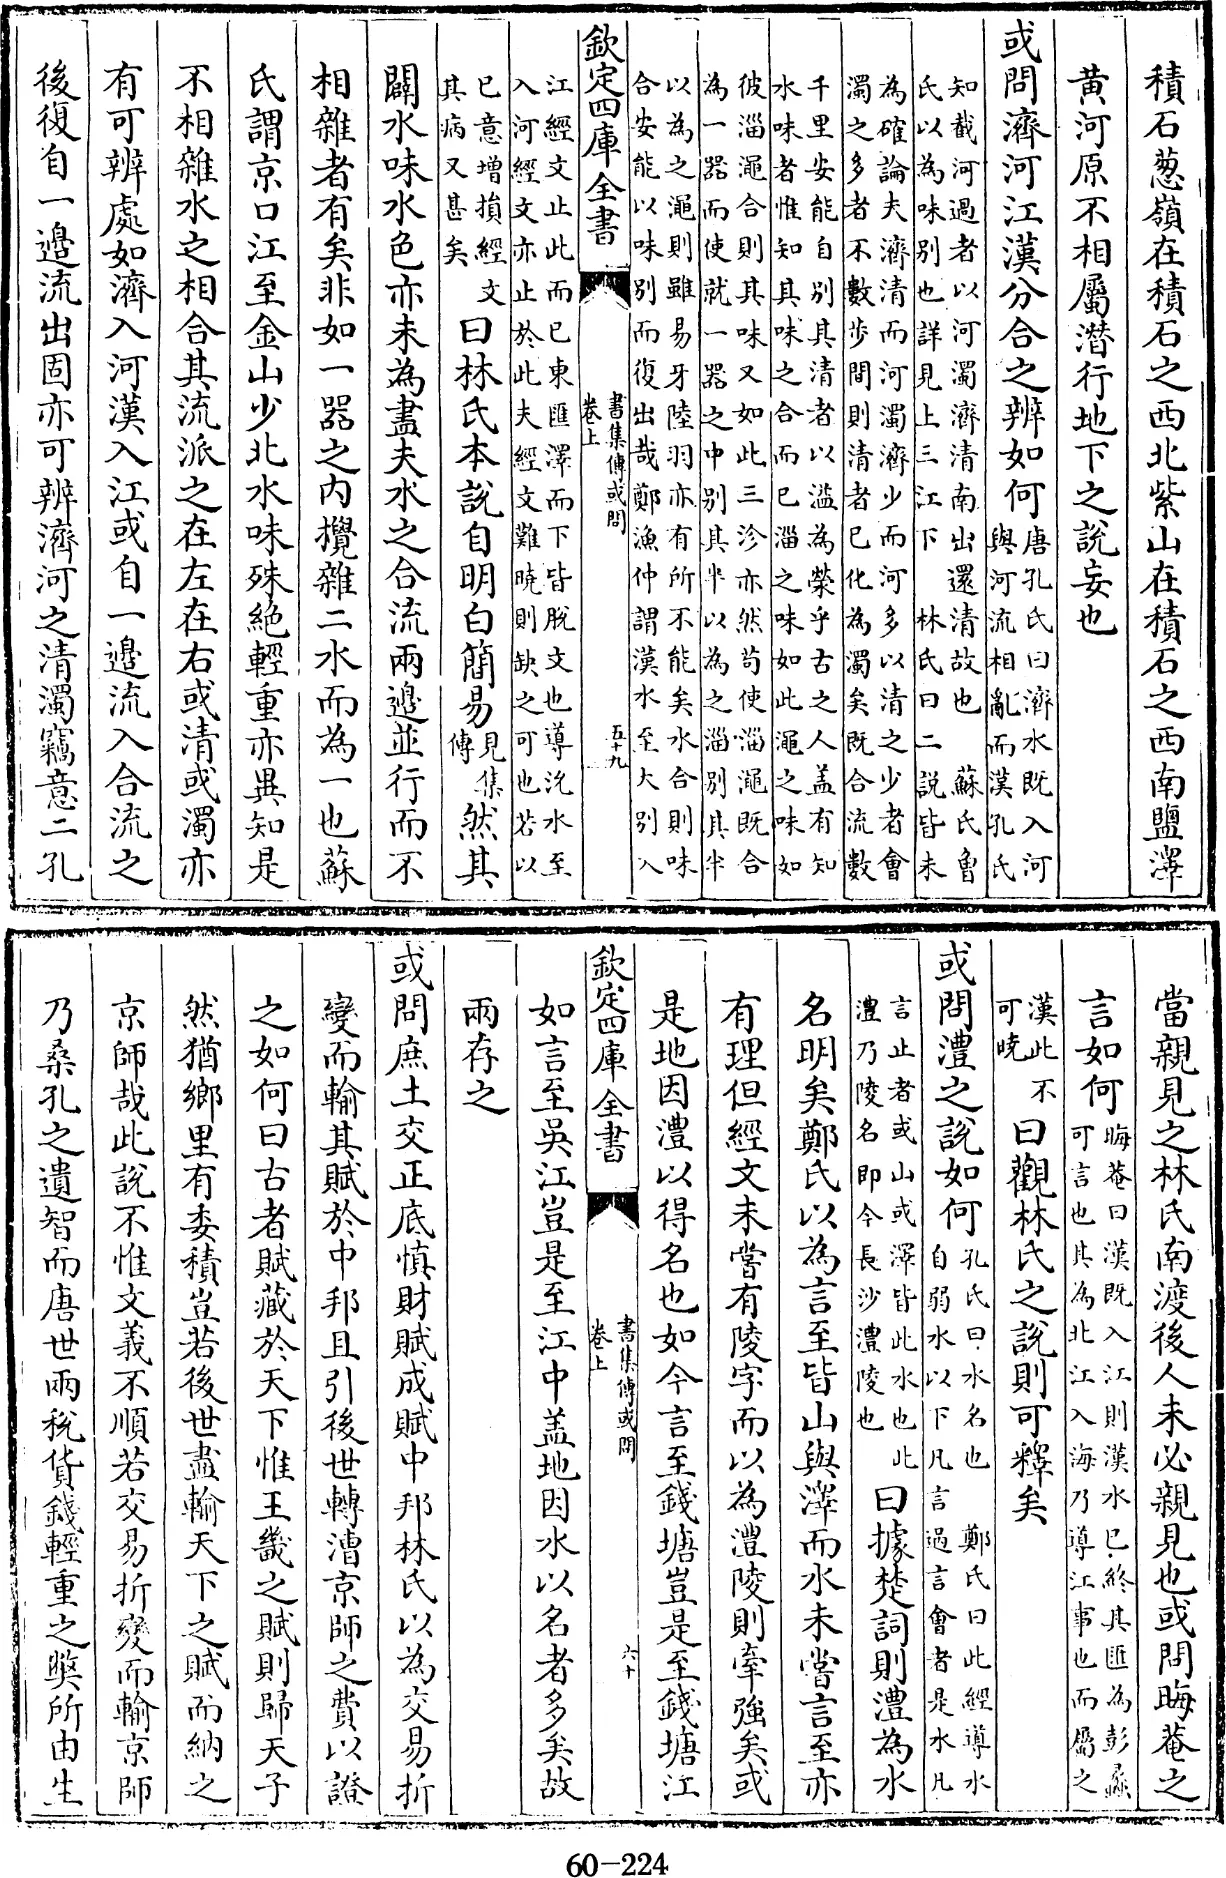 積石葱嶺在積石之西北紫山在積石之西南鹽澤
黄河原不相屬潜行地下之説妄也
或問濟河江漢分合之辨如何唐孔氏曰濟水既入河與河流相亂而漢孔氏
知截河過者以河濁濟清南出還清故也 蘇氏魯
氏以為味别也詳見上三江下 林氏曰二説皆未
為確論夫濟清而河濁濟少而河多以清之少者會
濁之多者不數步間則清者已化為濁矣既合流數
千里安能自别其清者以溢為滎乎古之人盖有知
水味者惟知其味之合而已淄之味如此澠之味如
彼淄澠合則其味又如此三沴亦然苟使淄澠既合
為一器而使就一器之中别其半以為之淄别其半
以為之澠則雖易牙陸羽亦有所不能矣水合則味
合安能以味别而復出哉鄭漁仲謂漢水至大别入
欽定四庫全書
書集傳或問
卷上
五十九
江經文止此而已東匯澤而下皆脱文也導沇水至
入河經文亦止於此夫經文難曉則缺之可也若以
已意增損經文其病又甚矣曰林氏本説自明白簡易見集傳然其
闢水味水色亦未為盡夫水之合流兩邉並行而不
相雜者有矣非如一器之内攪雜二水而為一也蘇
氏謂京口江至金山少北水味殊絶輕重亦異知是
不相雜水之相合其流派之在左在右或清或濁亦
有可辨處如濟入河漢入江或自一邉流入合流之
後復自一邉流出固亦可辨濟河之清濁竊意二孔
當親見之林氏南渡後人未必親見也或問晦菴之
言如何晦菴曰漢既入江則漢水已終其匯為彭蠡可言也其為北江入海乃導江事也而屬之
漢此不可曉曰觀林氏之説則可釋矣
或問澧之説如何孔氏曰水名也 鄭氏曰此經導水自弱水以下凡言過言會者是水凡
言止者或山或澤皆此水也此澧乃陵名即今長沙澧陵也曰據楚詞則澧為水
名明矣鄭氏以為言至皆山與澤而水未嘗言至亦
有理但經文未嘗有陵字而以為澧陵則牽強矣或
是地因澧以得名也如今言至錢塘豈是至錢塘江
欽定四庫全書
書集傳或問
卷上
六十
如言至吳江豈是至江中盖地因水以名者多矣故
兩存之
或問庶土交正底慎財賦成賦中邦林氏以為交易折
變而輸其賦於中邦且引後世轉漕京師之費以證
之如何曰古者賦藏於天下惟王畿之賦則歸天子
然猶鄉里有委積豈若後世盡輸天下之賦而納之
京師哉此説不惟文義不順若交易折變而輸京師
乃桑孔之遺智而唐世兩税貨錢輕重之獘所由生
60-224